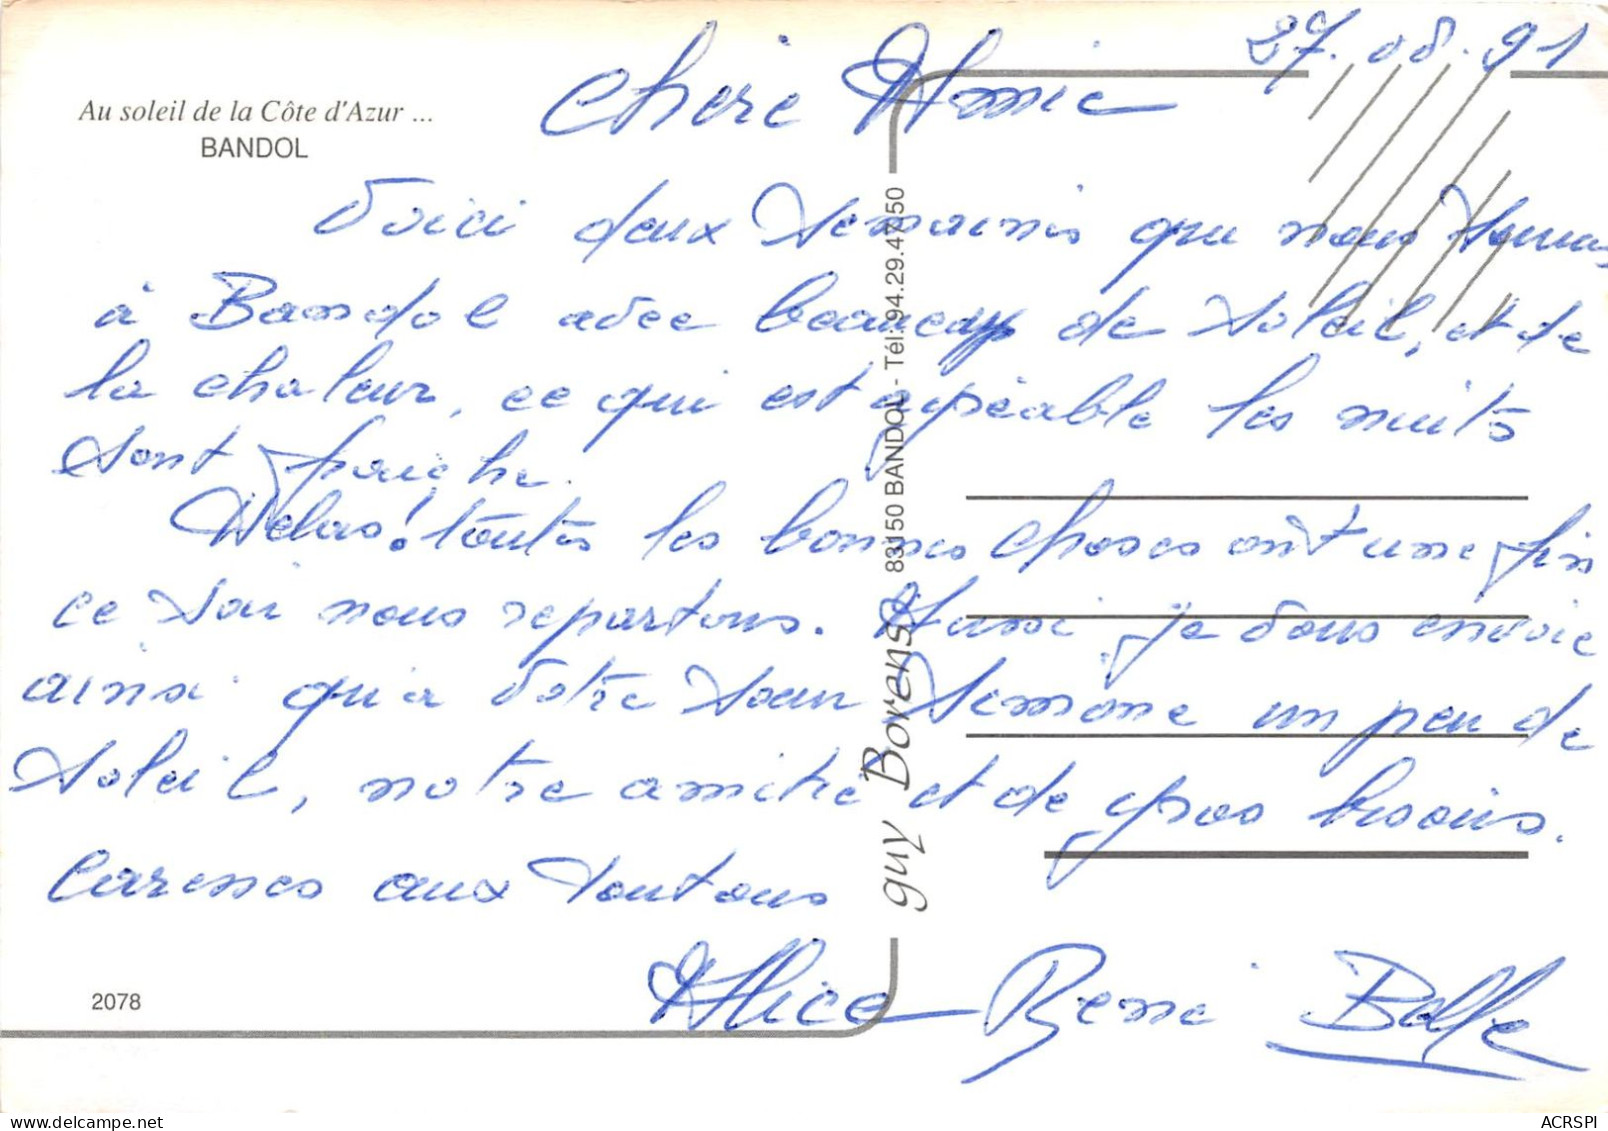 27.08.91
Chère Amie
Au soleil de la Côte d'Azur ...
BANDOL
Voici deux semaines que nous sommes
à Bandol avec beaucoup de soleil, et de
la chaleur, ce qui est agréable les nuits
sont fraiche.
Hélas! toutes les bonnes choses ont une fin
ce soir nous repartons. Aussi je vous envoie
ainsi qu'a votre sœur Simone un peu de
soleil, notre amitié et de gros bisous.
Caresses aux toutous
Alice René
2078
guy Borens 83150 BANDOL - Tél. 94.29.47.50
ACRSPI